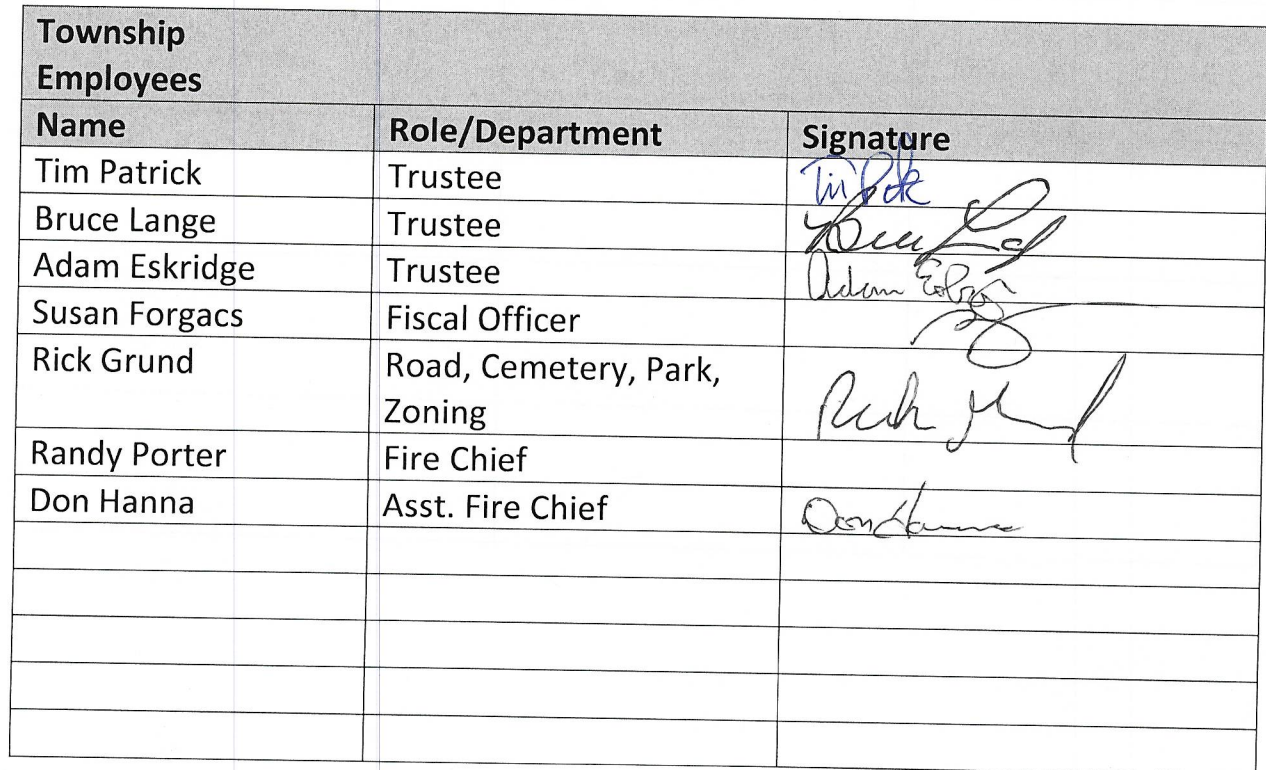 Township
Employees
Name Role/Department Signature
Tim Patrick Trustee
Bruce Lange Trustee
Adam Eskridge Trustee Adam
Susan Forgacs Fiscal Officer
Rick Grund Road, Cemetery, Park,
Zoning
Randy Porter Fire Chief
Don Hanna Asst. Fire Chief Don Hanna